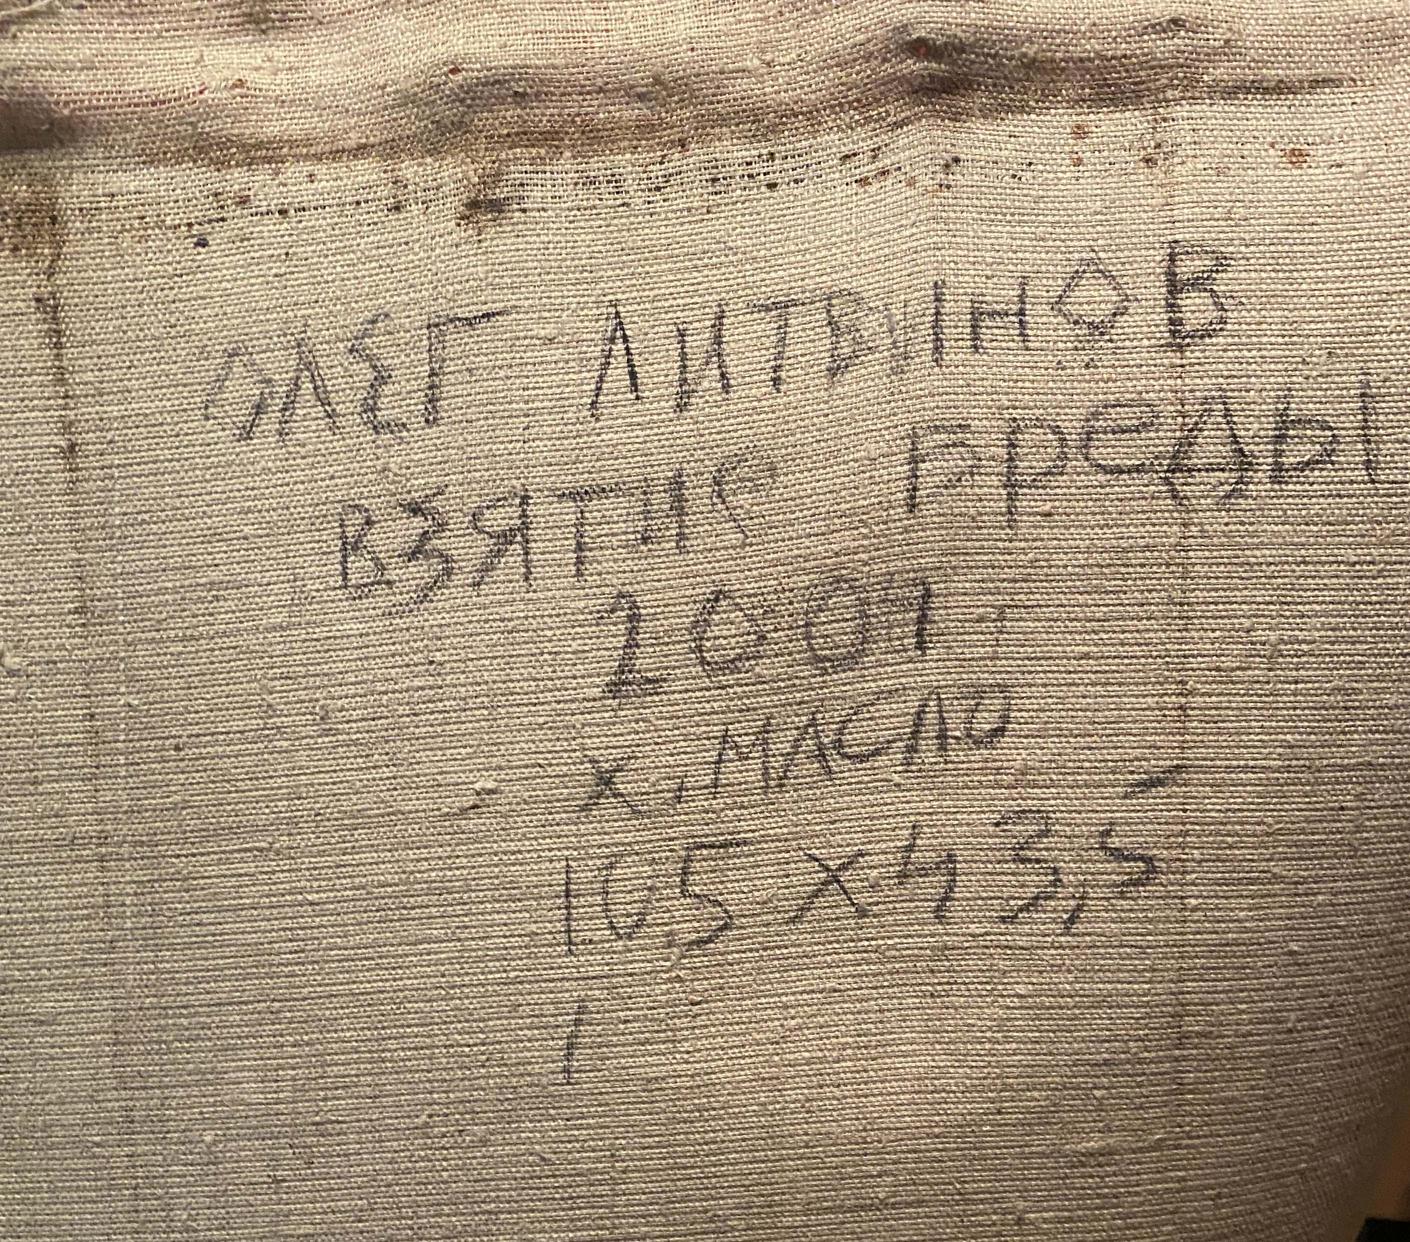 ОЛЕГ ЛИТВИНОВ
ВЗЯТИЕ БРЕДЫ
2001
х. МАСЛО
105 х 43,5